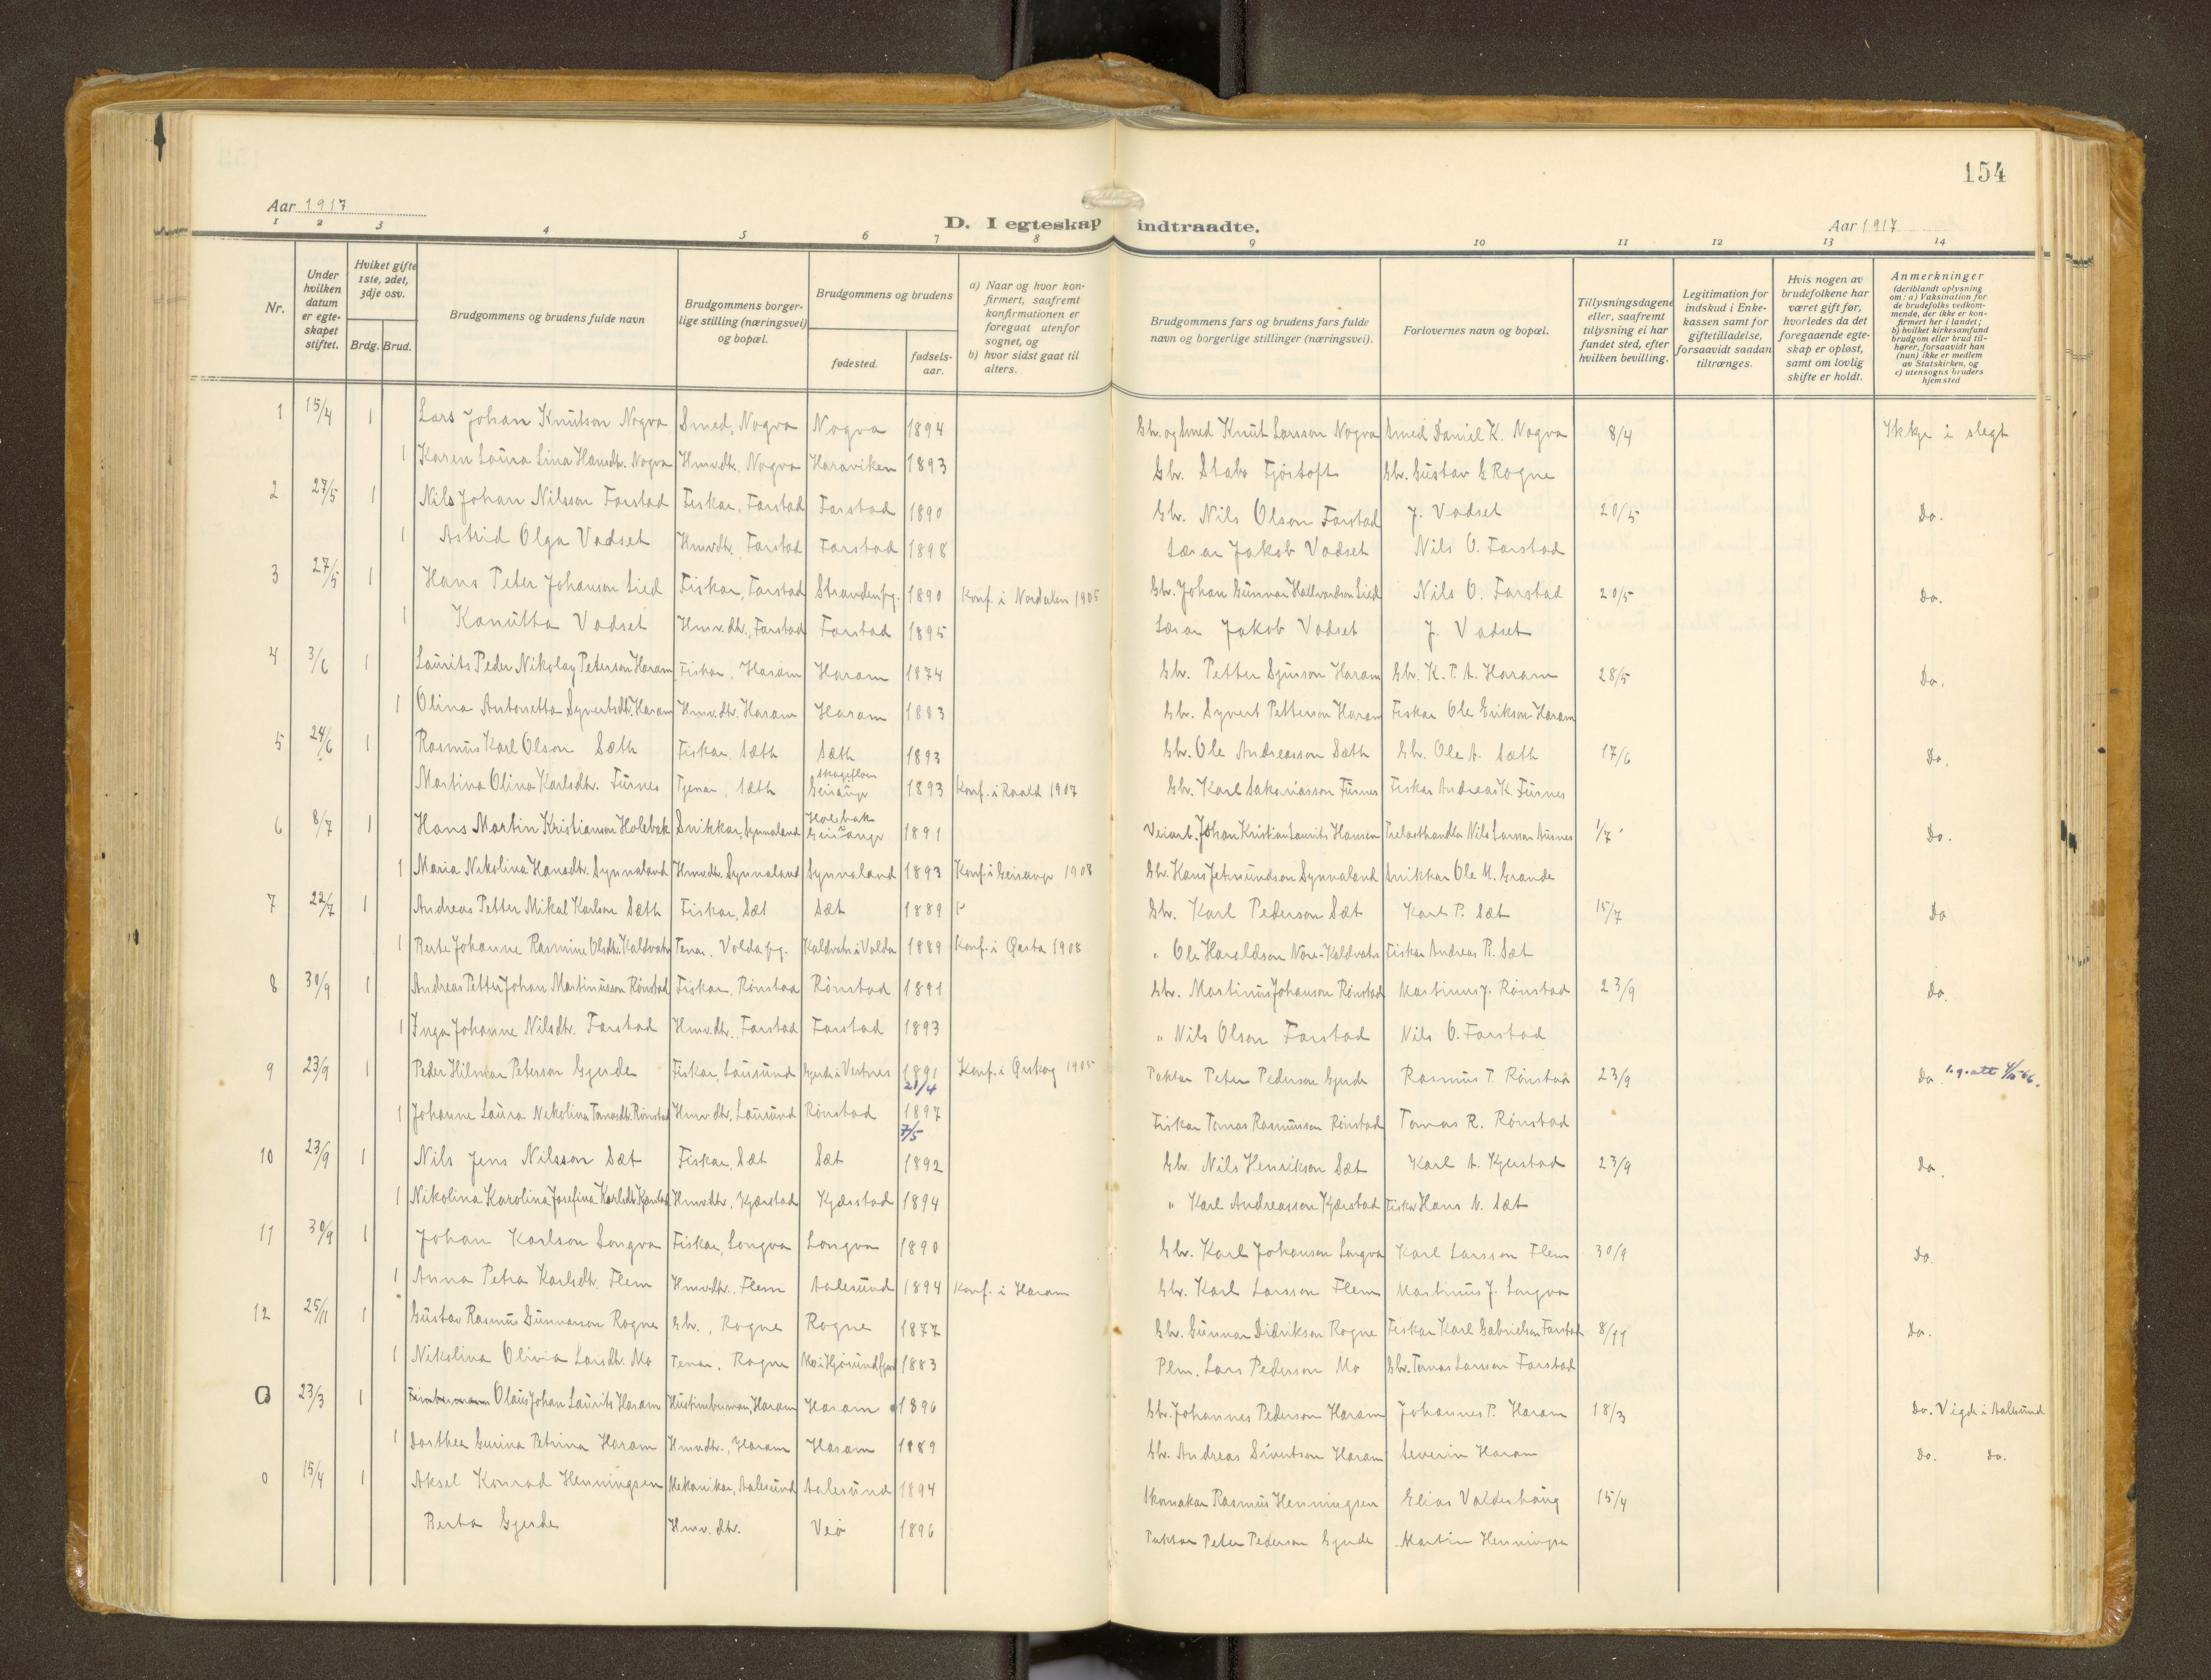 154
Aar 1917
D. I egteskap indtraadte.
Aar 1917
1 2 3 4 5 6 7 8 9 10 11 12 13 14
Nr.
Under hvilken datum er egteskapet stiftet.
Hviket gifte 1ste, 2det, 3dje osv.
Brdg. Brud.
Brudgommens og brudens fulde navn
Brudgommens borgerlige stilling (næringsvei) og bopæl.
Brudgommens og brudens
fødested.
fødselsaar.
a) Naar og hvor konfirmert, saafremt konfirmationen er foregaat utenfor sognet, og
b) hvor sidst gaat til alters.
Brudgommens fars og brudens fars fulde navn og borgerlige stillinger (næringsvei).
Forlovernes navn og bopæl.
Tillysningsdagene eller, saafremt tillysning ei har fundet sted, efter hvilken bevilling.
Legitimation for indskud i Enkekassen samt for giftetilladelse, forsaavidt saadan tiltrænges.
Hvis nogen av brudefolkene har været gift før, hvorledes da det foregaaende egteskap er opløst, samt om lovlig skifte er holdt.
Anmerkninger (deriblandt oplysning om: a) Vaksination for de brudefolks vedkommende, der ikke er konfirmert her i landet; b) hvilket kirkesamfund brudgom eller brud tilhører, forsaavidt han (hun) ikke er medlem av Statskirken, og c) utensogns bruders hjemsted
1 15/4 1 Lars Johan Knutson Nogva Smed, Nogva Nogva 1894 Gbr. og smed Knut Larsson Nogva Smed Daniel K. Nogva 8/4 Ikkje i slegt
1 Karen Laura Lina Hansdtr. Nogva Hmv.dtr. Nogva Haraviken 1893 Gbr. Fjørtoft Gbr. Gustav G. Rogne
2 27/5 1 Nils Johan Nilsson Farstad Fiskar, Farstad Farstad 1890 Gbr. Nils Olson Farstad J. Vadset 20/5 Do.
1 Astrid Olga Vadset Hmv.dtr., Farstad Farstad 1898 Lærar Jakob Vadset Nils O. Farstad
3 27/5 1 Hans Peter Johanson Lied Fiskar, Farstad Strandenpg. 1890 Konf. i Nordalen 1905 Gbr. Johan Gunnar Hallvardson Lied Nils O. Farstad 20/5 Do.
1 Kanutta Vadset Hmv.dtr., Farstad Farstad 1895 Lærar Jakob Vadset J. Vadset
4 3/6 1 Laurits Peder Nikolay Peterson Haram Fiskar, Haram Haram 1874 Gbr. Petter Sjurson Haram Gbr. K. P. A. Haram 28/5 Do.
1 Olina Antonetta Syvertsdtr. Haram Hmv.dtr. Haram Haram 1883 Gbr. Syvert Petterson Haram Fiskar Ole Erikson Haram
5 24/6 1 Rasmus Karl Olson Sæth Fiskar, Sæth Sæth 1893 Gbr. Ole Andreasson Sæth Gbr. Ole A. Sæth 17/6 Do.
Martina Olina Karlsdtr. Furnes Tjenar, Sæth Skageflaen Geiranger 1893 Konf. i 1907 Gbr. Karl Sakariasson Furnes Fiskar Andreas K. Furnes
6 8/7 1 Hans Martin Kristianson Holebak Snikkar, Synnaland Holebak Geiranger 1891 Veiarb. Johan Kristian Laurits Hansen Trelasthandlar Nils Larson Aurnes 1/7 Do.
1 Maria Nikolina Hansdtr. Synnaland Hmv.dtr. Synnaland Synnaland 1893 Konf. i Geiranger 1908 Gbr. Hans Jetmundson Synnaland Snikkar Ole M. Grande
7 22/7 1 Andreas Petter Mikal Karlson Sæth Fiskar, Sæt Sæt 1889 Gbr. Karl Pederson Sæt Karl P. Sæt 15/7 Do
1 Berte Johanne Rasmine Olsdtr. Kaldvatn Tenar. Volda pg. Kaldvatn i Volda 1889 Konf. i Ørsta 1908 " Ole Haraldson Nore-Kaldvatn Fiskar Andreas P. Sæt
8 30/9 1 Andreas Petter Johan Martinusson Rønstad Fiskar, Rønstad Rønstad 1891 Gbr. Martinus Johanson Rønstad Martinus J. Rønstad 23/9 Do.
1 Inga Johanne Nilsdtr. Farstad Hmv.dtr., Farstad Farstad 1893 " Nils Olson Farstad Nils O. Farstad
9 23/9 1 Peder Hilmar Peterson Gjerde Fiskar, Lausund Gjerde i Vestnes 1891 21/4 Konf. i Ørskog 1905 Paktar Peter Pederson Gjerde Rasmus T. Rønstad 23/9 Do.
1 Johanne Laura Nekolina Tomasdtr. Rønstad Hmv.dtr., Lausund Rønstad 1897 7/5 Fiskar Tomas Rasmusson Rønstad Tomas R. Rønstad
10 23/9 1 Nils Jens Nilsson Sæt Fiskar, Sæt Sæt 1892 Gbr. Nils Henrikson Sæt Karl A. Kjerstad 23/9 Do.
1 Nikolina Karolina Josefina Karlsdtr. Kjærstad Hmv.dtr., Kjærstad Kjærstad 1894 " Karl Andreasson Kjærstad Fiskar Hans N. Sæt
11 30/9 1 Johan Karlson Longva Fiskar, Longva Longva 1890 Gbr. Karl Johanson Longva Karl Larsson Flem 30/9 Do.
1 Anna Petra Karlsdtr. Flem Hmv.dtr., Flem Aalesund 1894 Konf. i Haram Gbr. Karl Larsson Flem Martinus J. Longva
12 25/11 1 Gustav Rasmus Gunnarson Rogne Gbr., Rogne Rogne 1877 Gbr. Gunnar Didrikson Rogne Fiskar Karl Gabrielson Farstad 8/11 Do.
1 Nikolina Olivia Larsdtr. Mo Tenar, Rogne Mo i Hjørundfjord 1883 Plm. Lars Pederson Mo Gbr. Tomas Larsson Farstad
0 23/3 1 Olaus Johan Laurits Haram Hustimbrman, Haram Haram 1896 Gbr. Johannes Pederson Haram Johannes P. Haram 18/3 Do. Vigde i Aalesund
1 Dorthea Gurina Petrina Haram Hmv.dtr., Haram Haram 1889 Gbr. Andreas Sivertson Haram Severin Haram Do. Do.
0 15/4 1 Aksel Konrad Henningsen Mekanikar, Aalesund Aalesund 1894 Skomakar Rasmus Henningsen Elias Valderhaug 15/4
Berta Gjerde Hmv.dtr. Veø 1896 Paktar Peter Pederson Gjerde Martin Henningsen